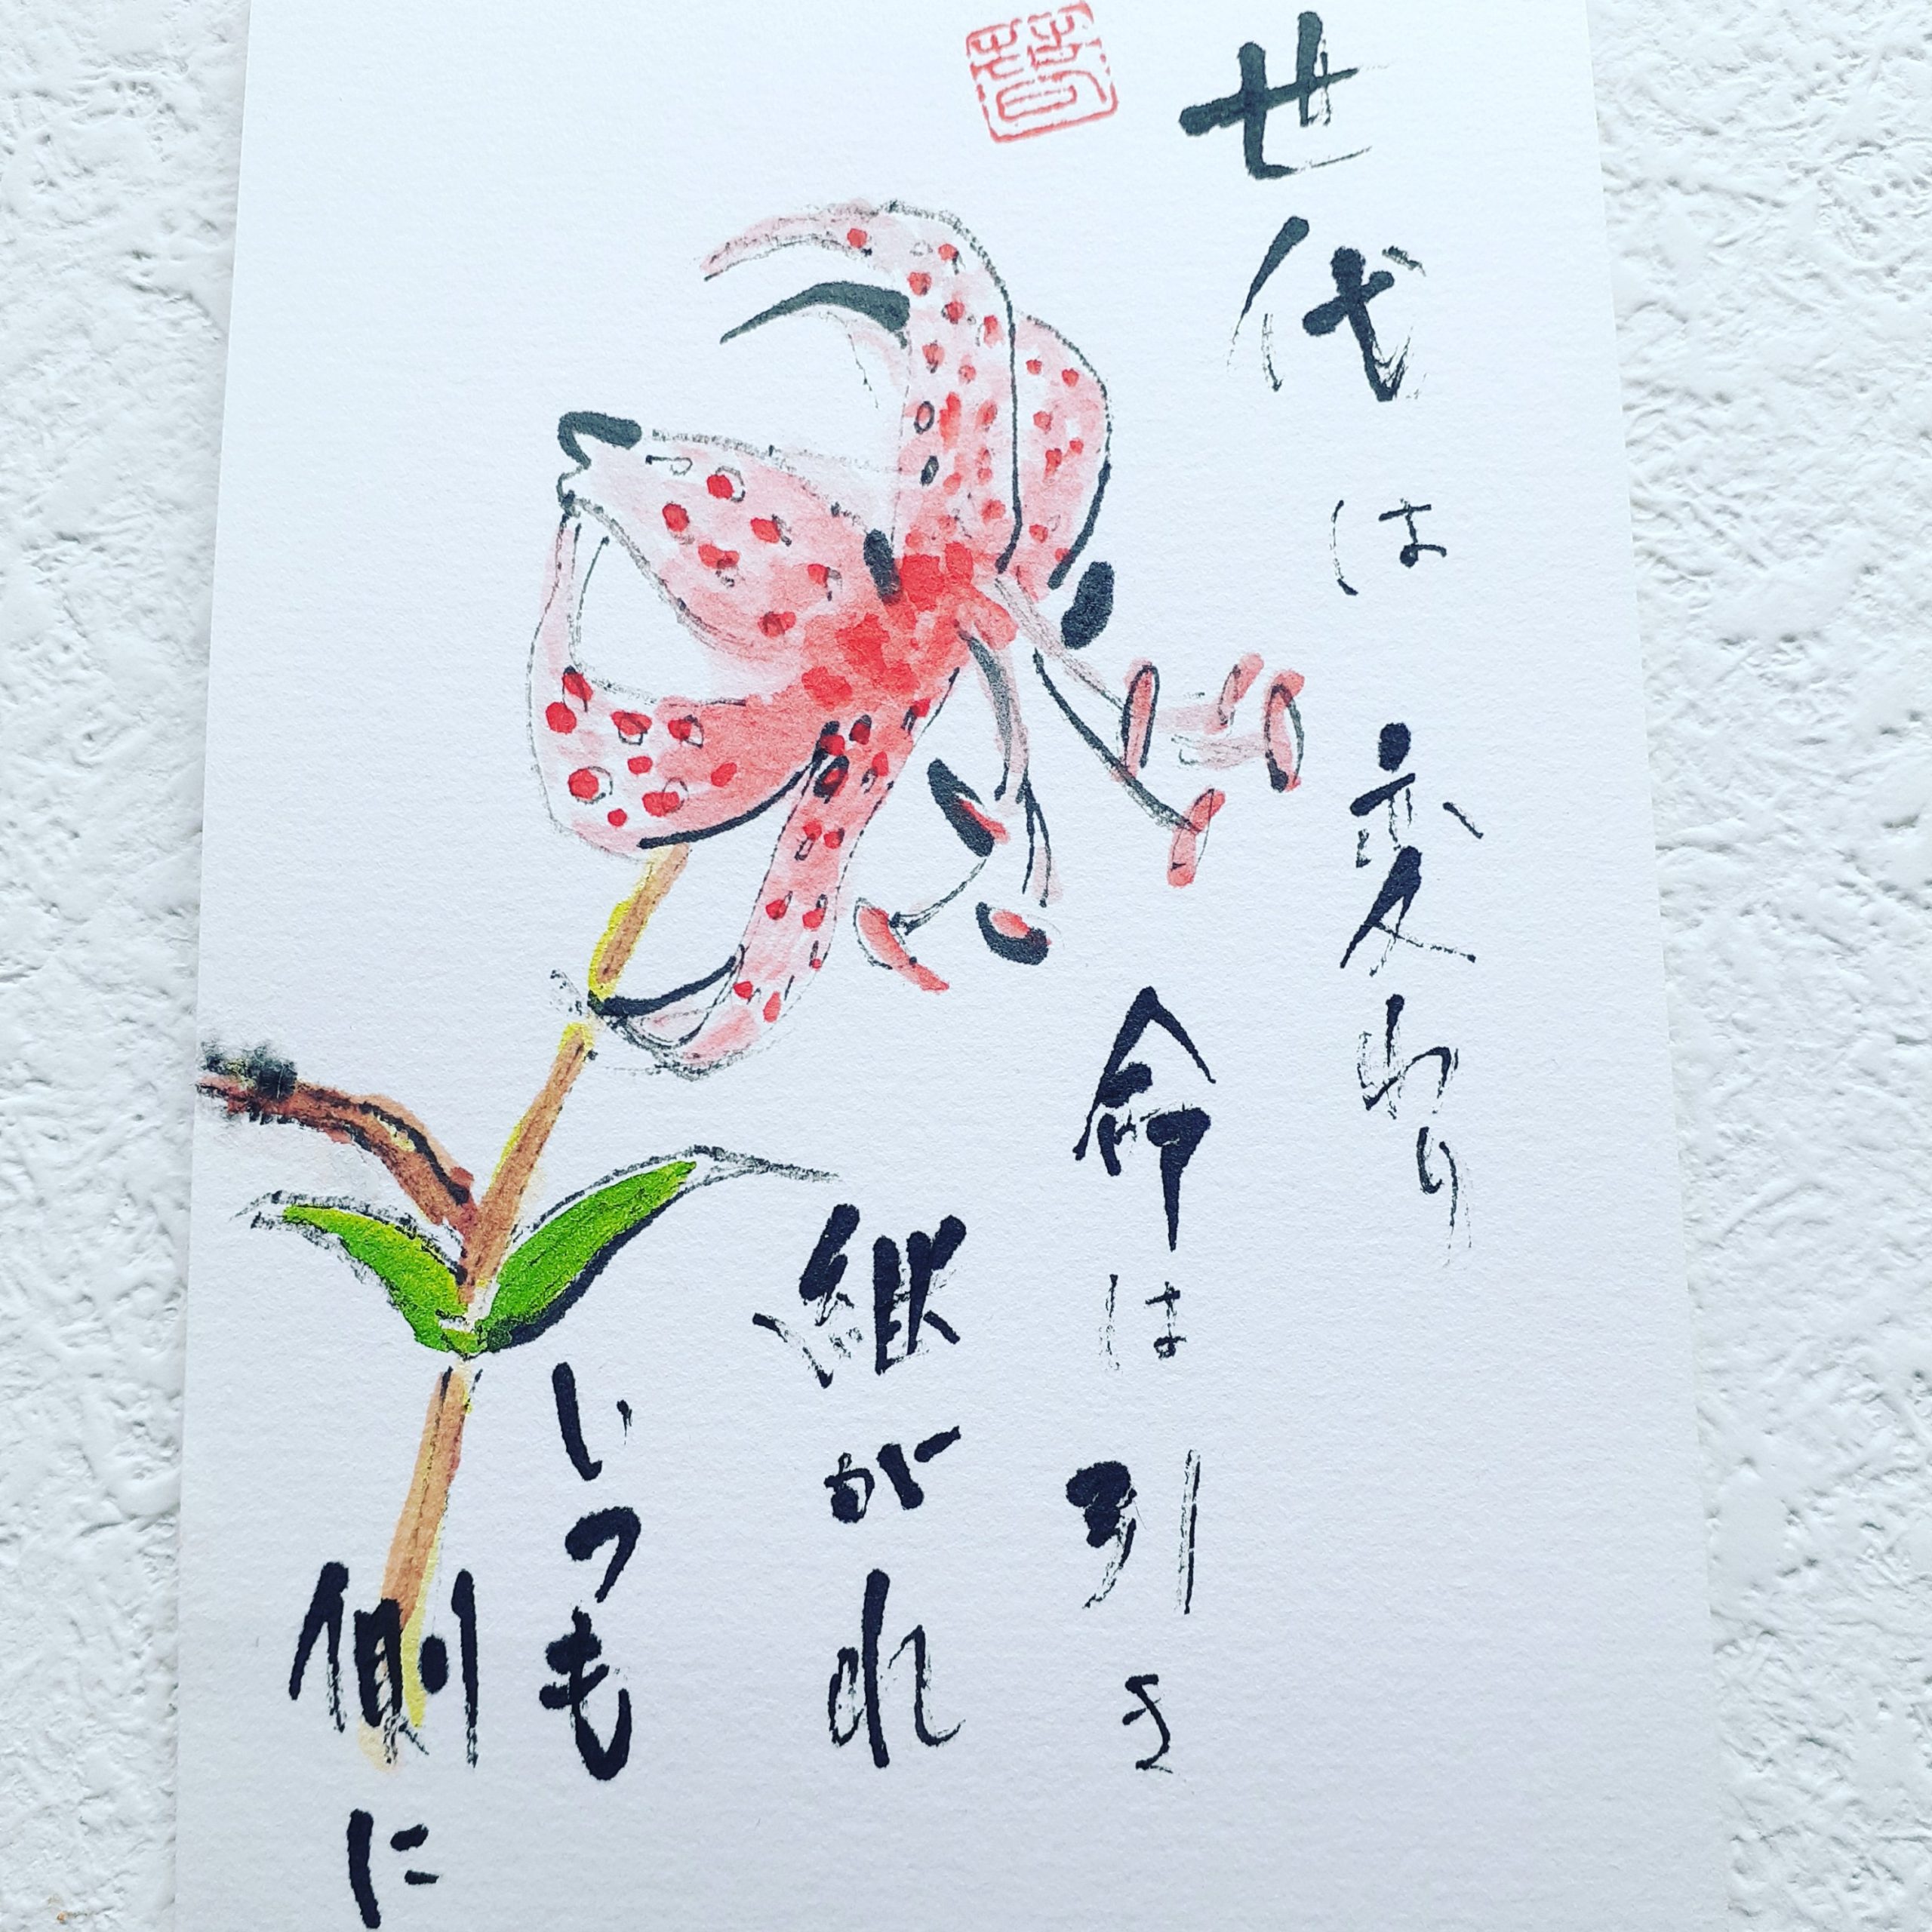 世代は変わり
命は引き
継がれ
いつも
側に